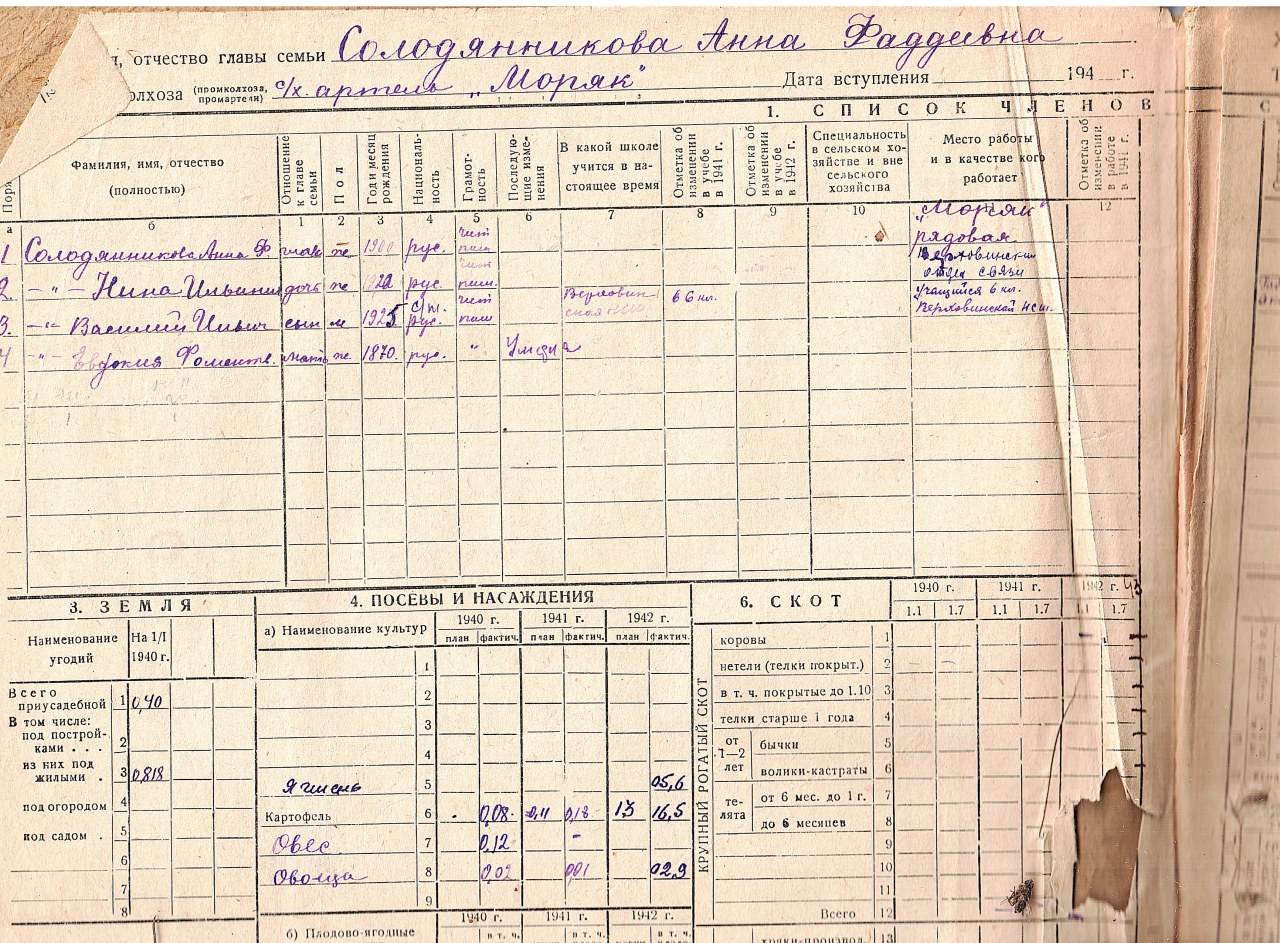 , отчество главы семьи Солодянникова Анна Фаддеевна
олхоза (промколхоза, промартели) с/х. артель „Моряк" Дата вступления 194 г.
1. СПИСОК ЧЛЕНОВ
Фамилия, имя, отчество (полностью)
Отношение к главе семьи
Пол
Год и месяц рождения
Националь-ность
Грамот-ность
Последую-щие изме-нения
В какой школе учится в на-стоящее время
Отметка об изменении в учебе в 1941 г.
Отметка об изменении в учебе в 1942 г.
Специальность в сельском хо-зяйстве и вне сельского хозяйства
Место работы и в качестве кого работает
Отметка об изменении в работе в 1941 г.
а б 1 2 3 4 5 6 7 8 9 10 12
1 Солодянникова Анна Ф. глав же 1900 рус. „Моряк" рядовая
2. —"— Нина Ильини дочь же рус. Верховинский отдел связи
3. —"— Василий Ильич сын м 1925 рус. 6 кл. Учащийся 6 кл. Верховинской НСШ.
4 —"— Евдокия Фоментв. мать же. 1870. рус. " Умерла
3. ЗЕМЛЯ
Наименование угодий На 1/I 1940 г.
Всего приусадебной 1 0,40
В том числе:
под построй-ками . . . 2
из них под жилыми . 3 0,818
под огородом 4
под садом . 5
6
7
8
4. ПОСЕВЫ И НАСАЖДЕНИЯ
а) Наименование культур 1940 г. 1941 г. 1942 г.
план фактич. план фактич. план фактич.
1
2
3
4
Ячмень 5 05,6
Картофель 6 0,08 0,11 0,18 13 16,5
Овес 7 0,12 -
Овощи 8 0,02 0,01 02,9
9
1940 г. 1941 г. 1942 г.
б) Плодово-ягодные в т. ч. в т. ч. в т. ч.
6. СКОТ
1940 г. 1941 г. 1942 г. 43
1.1 1.7 1.1 1.7 1.1 1.7
КРУПНЫЙ РОГАТЫЙ СКОТ
коровы 1
нетели (телки покрыт.) 2
в т. ч. покрытые до 1.10 3
телки старше 1 года 4
от 1—2 лет
бычки 5
волики-кастраты 6
те-лята
от 6 мес. до 1 г. 7
до 6 месяцев 8
9
10
11
Всего 12
хряки-производ. 13